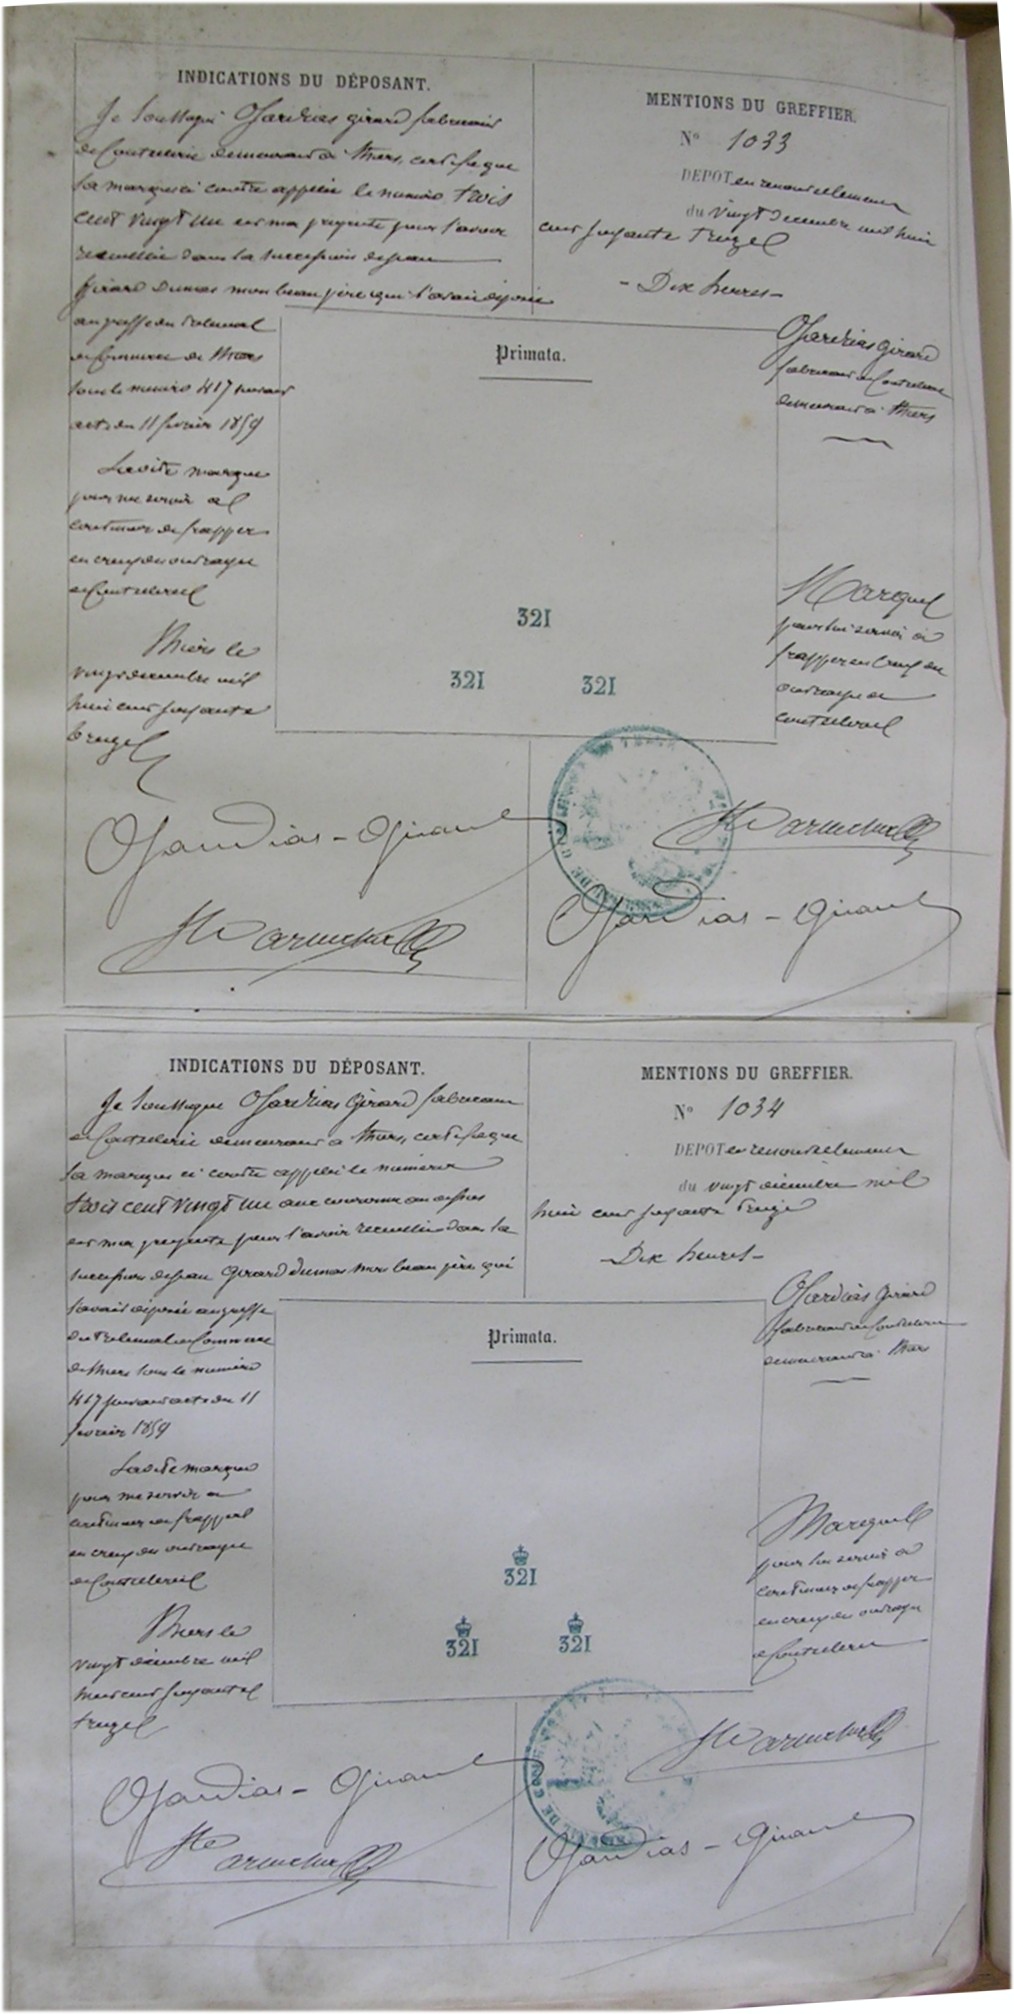 INDICATIONS DU DÉPOSANT.
Je soussigné Ojardias Girard fabricant
de Coutellerie demeurant à Thiers, certifie que
la marque ci contre appelée le numéro trois
cent vingt un est ma propriété pour l'avoir
recueillie dans la succession de Jean
Girard Dumas mon beau père qui l'avait déposée
au greffe du Tribunal
de Commerce de Thiers
sous le numéro 417 suivant
acte du 11 février 1859
Ladite marque
pour me servir à
continuer de frapper
en creux des ouvrages
de Coutellerie
Thiers le
vingt décembre mil
huit cent soixante
treize
Ojardias-Girard
MENTIONS DU GREFFIER.
N° 1033
DEPOT en renouvellement
du vingt décembre mil huit
cent soixante treize
- Dix heures -
Ojardias Girard
fabricant de Coutellerie
demeurant à Thiers
Primata.
321
321 321
Marque
pour lui servir à
frapper en creux des
ouvrages de
coutellerie
Ojardias-Girard
INDICATIONS DU DÉPOSANT.
Je soussigné Ojardias Girard fabricant
de Coutellerie demeurant à Thiers, certifie que
la marque ci contre appelée le numéro
trois cent vingt un avec couronne au dessus
est ma propriété pour l'avoir recueillie dans la
succession de Jean Girard Dumas mon beau père qui
l'avait déposée au greffe
du Tribunal de Commerce
de Thiers sous le numéro
417 suivant acte du 11
février 1859
Ladite marque
pour me servir à
continuer de frapper
en creux des ouvrages
de Coutellerie
Thiers le
vingt décembre mil
huit cent soixante
treize
Ojardias-Girard
MENTIONS DU GREFFIER.
N° 1034
DEPOT en renouvellement
du vingt décembre mil
huit cent soixante treize
Dix heures -
Ojardias Girard
fabricant de Coutellerie
demeurant à Thiers
Primata.
321
321 321
Marque
pour lui servir à
continuer de frapper
en creux des ouvrages
de Coutellerie
Ojardias-Girard